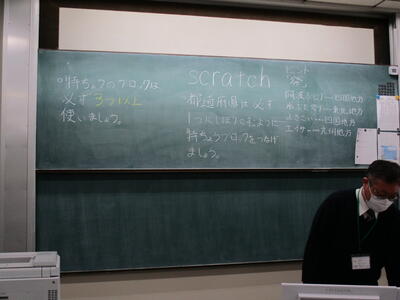 ◦特ちょうのブロックは
必ず3つ以上
使いましょう。
scratch
都道府県は必ず
1つにしぼりこむように
特ちょうブロックをつなげ
ましょう。
ヒント
阿波おどり…四国地方
ねぶた祭り…東北地方
よさこい…四国地方
エイサー…九州地方